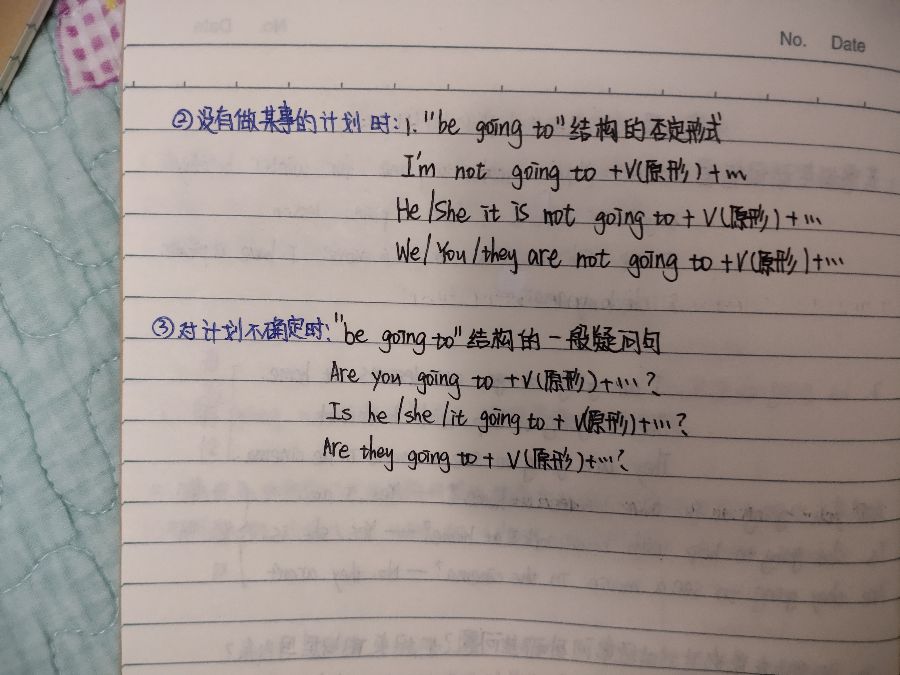 No. Date
②没有做某事的计划时:1."be going to"结构的否定形式
I'm not going to +V(原形)+…
He/She it is not going to + V(原形)+…
We/You/they are not going to +V(原形)+…
③对计划不确定时:"be going to"结构的一般疑问句
Are you going to +V(原形)+…?
Is he/she/it going to + V(原形)+…?
Are they going to + V(原形)+…?